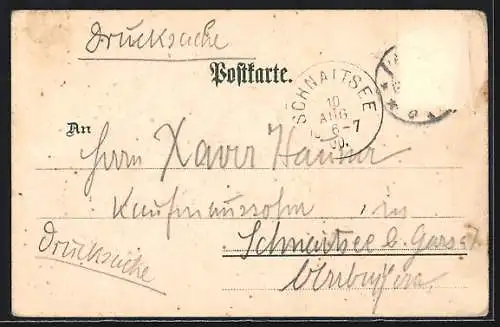 Drucksache
Postkarte.
SCHNAITSEE
10
AUG
6-7
00.
An
Herrn Xaver
Kaufmannssohn in
Schnaitsee b. Gars
Drucksache